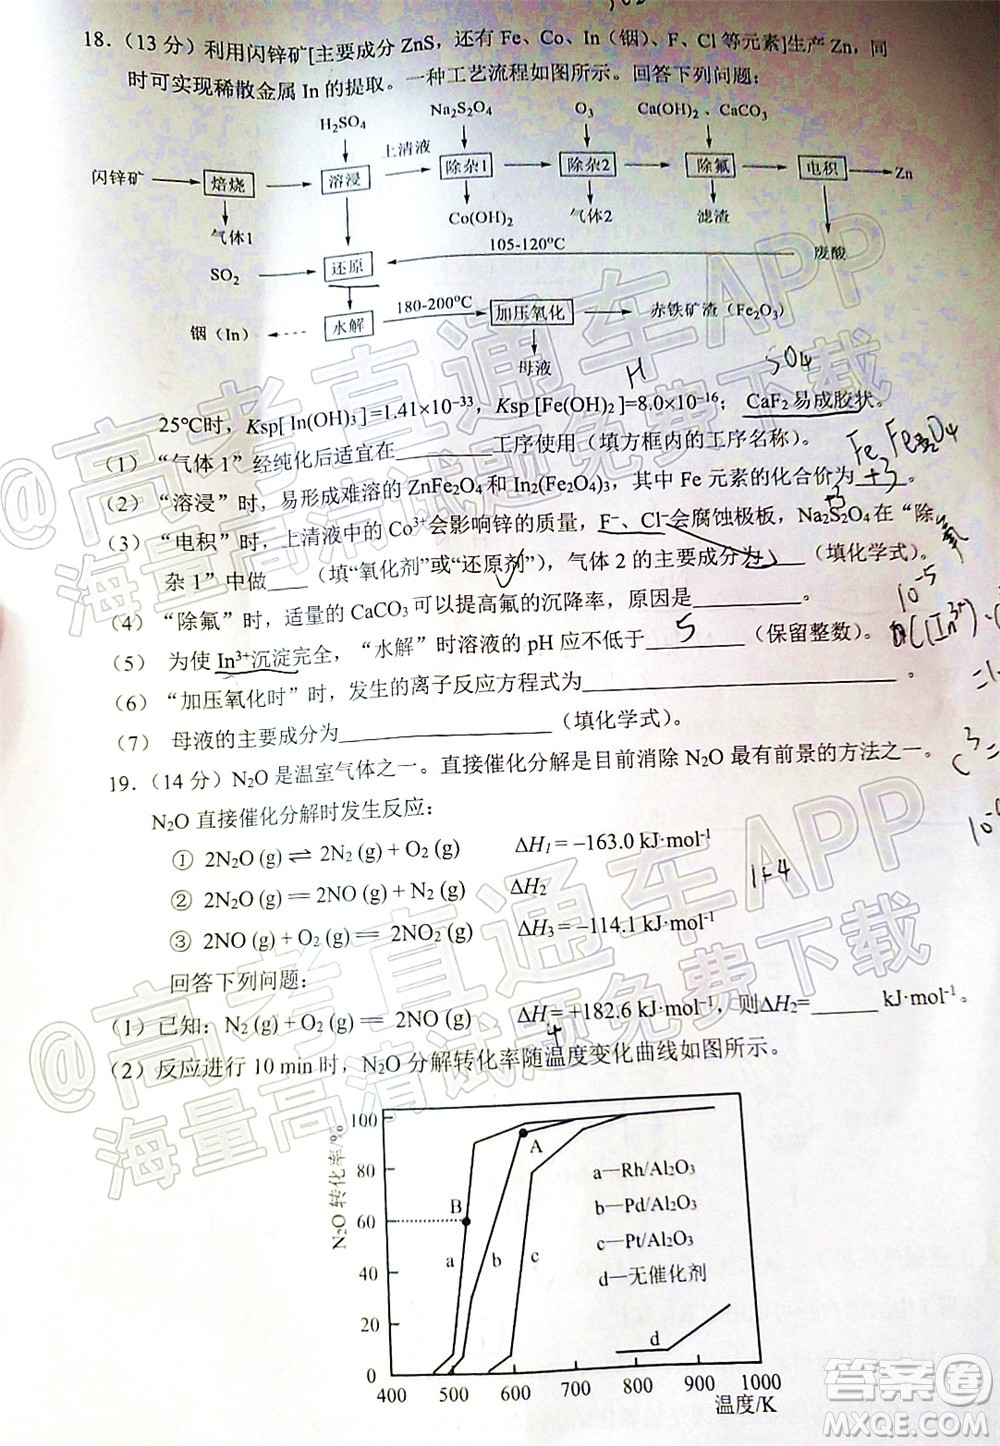 18.（13 分）利用闪锌矿[主要成分 ZnS，还有 Fe、Co、In（铟）、F、Cl 等元素]生产 Zn，同
时可实现稀散金属 In 的提取。一种工艺流程如图所示。回答下列问题：
H₂SO₄ Na₂S₂O₄ O₃ Ca(OH)₂、CaCO₃
上清液
闪锌矿 焙烧 溶浸 除杂1 除杂2 除氟 电积 Zn
气体1 Co(OH)₂ 气体2 滤渣 废酸
105-120℃
SO₂ 还原
180-200℃
铟（In） 水解 加压氧化 赤铁矿渣（Fe₂O₃）
母液
H SO4
25℃时，Ksp[ In(OH)₃]=1.41×10⁻³³，Ksp [Fe(OH)₂]=8.0×10⁻¹⁶；CaF₂易成胶状。
（1）“气体 1”经纯化后适宜在________工序使用（填方框内的工序名称）。
（2）“溶浸”时，易形成难溶的 ZnFe₂O₄ 和 In₂(Fe₂O₄)₃，其中 Fe 元素的化合价为 +3 。
（3）“电积”时，上清液中的 Co³⁺会影响锌的质量，F⁻、Cl⁻会腐蚀极板，Na₂S₂O₄在“除
杂 1”中做____（填“氧化剂”或“还原剂”），气体 2 的主要成分为______（填化学式）。
（4）“除氟”时，适量的 CaCO₃ 可以提高氟的沉降率，原因是__________。
（5） 为使 In³⁺沉淀完全，“水解”时溶液的 pH 应不低于 5 （保留整数）。
（6）“加压氧化时”时，发生的离子反应方程式为______________________________。
（7） 母液的主要成分为____________________（填化学式）。
19.（14 分）N₂O 是温室气体之一。直接催化分解是目前消除 N₂O 最有前景的方法之一。
N₂O 直接催化分解时发生反应：
① 2N₂O (g) ⇌ 2N₂ (g) + O₂ (g) ΔH₁ = −163.0 kJ·mol⁻¹
② 2N₂O (g) ═ 2NO (g) + N₂ (g) ΔH₂
1+4
③ 2NO (g) + O₂ (g) ═ 2NO₂ (g) ΔH₃ = −114.1 kJ·mol⁻¹
回答下列问题：
（1）已知：N₂ (g) + O₂ (g) ═ 2NO (g) ΔH = +182.6 kJ·mol⁻¹，则ΔH₂=______ kJ·mol⁻¹。
4
（2）反应进行 10 min 时，N₂O 分解转化率随温度变化曲线如图所示。
N₂O 转化率/%
100
80
60
40
20
0
A
B
a
b
c
d
a—Rh/Al₂O₃
b—Pd/Al₂O₃
c—Pt/Al₂O₃
d—无催化剂
400 500 600 700 800 900 1000
温度/K
@高考直通车APP
海量高清试题免费下载
@高考直通车APP
海量高清试题免费下载
答案圈
MXQE.COM